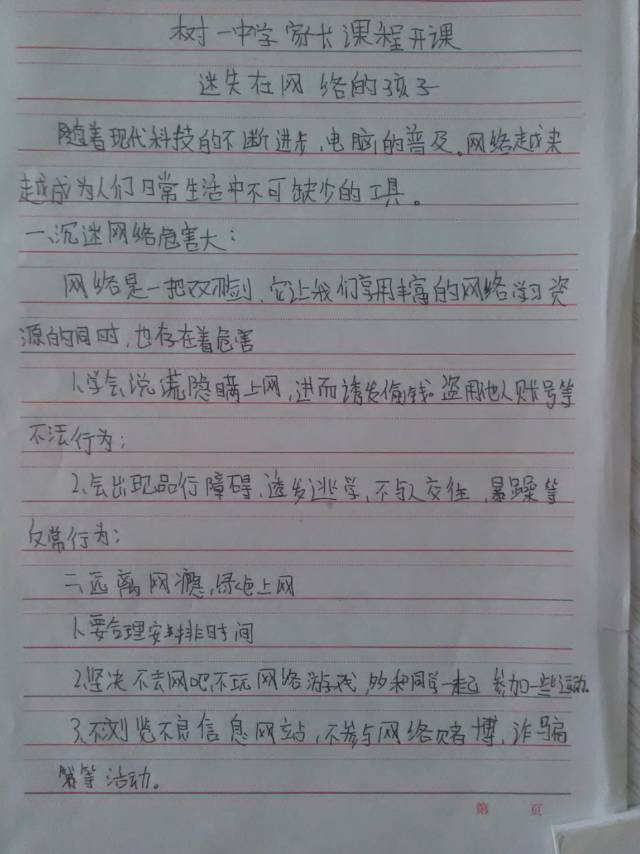 树一中学家长课程开课
迷失在网络的孩子
随着现代科技的不断进步,电脑的普及。网络越来
越成为人们日常生活中不可缺少的工具。
一、沉迷网络危害大:
网络是一把双刃剑,它让我们享用丰富的网络学习资
源的同时,也存在着危害
1、学会说谎隐瞒上网,进而诱发偷钱。盗用他人账号等
不法行为;
2、会出现品行障碍,诱发逃学,不与人交往,暴躁等
反常行为;
二、远离网瘾,绿色上网
1、要合理安排时间
2、坚决不去网吧,不玩网络游戏,多和同学一起参加一些运动.
3、不浏览不良信息网站,不参与网络赌博,诈骗
等活动。
第 页